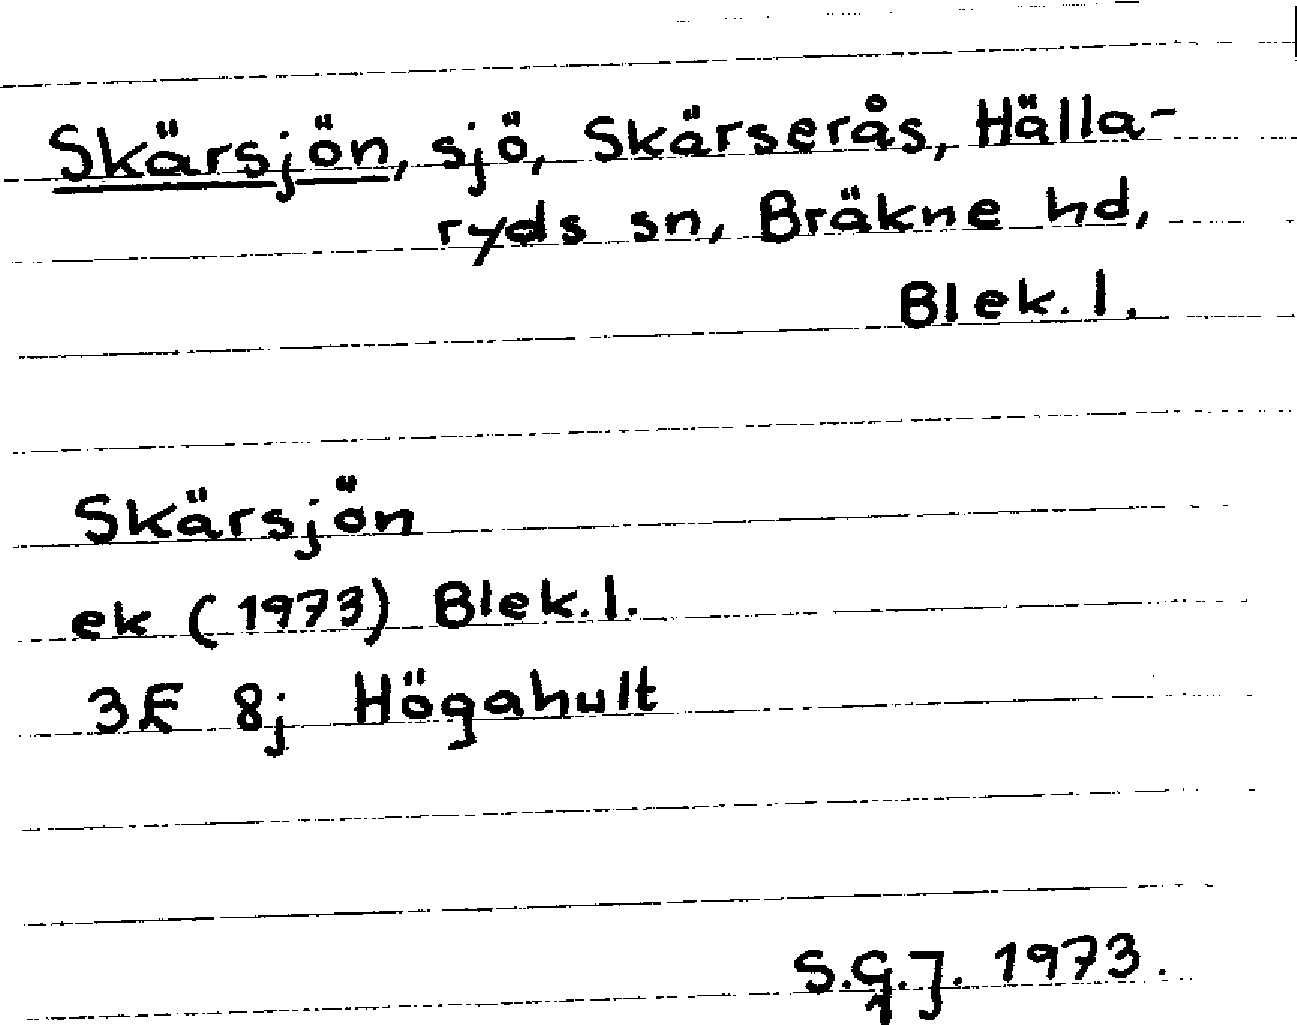 Skärsjön, sjö, Skärserås, Hälla-
ryds sn, Bräkne hd,
Blek. l.
Skärsjön
ek (1973) Blek. l.
3F 8j Högahult
S.G.J. 1973.